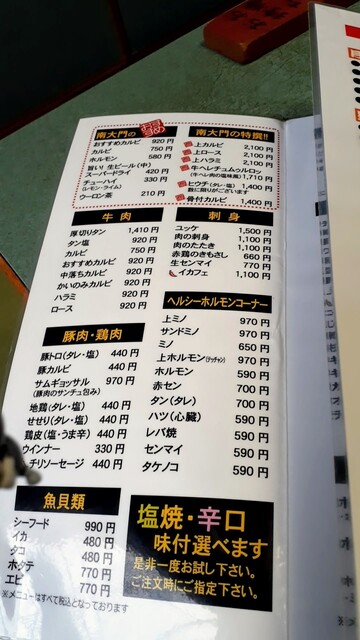 南大門の
おすすめ
おすすめカルビ 920円
カルビ 750円
ホルモン 580円
旨い! 生ビール(中)
スーパードライ 420円
チューハイ 330円
(レモン・ライム)
ウーロン茶 210円
南大門の特撰!!
上カルビ 2,100円
上ロース 2,100円
上ハラミ 2,100円
牛ヘレチュムゥルロッ
(牛ヘレ肉の塩味風) 1,710円
ヒウチ(タレ・塩) 1,400円
数に限りがございます
骨付カルビ 1,400円
牛肉
厚切りタン 1,410円
タン塩 920円
カルビ 750円
おすすめカルビ 920円
中落ちカルビ 920円
かいのみカルビ 920円
ハラミ 920円
ロース 920円
刺身
ユッケ 1,500円
肉の刺身 1,100円
肉のたたき 1,100円
赤鶏のきもさし 660円
生センマイ 770円
イカフェ 1,100円
豚肉・鶏肉
豚トロ(タレ・塩) 440円
豚カルビ 440円
サムギョッサル 970円
(豚肉のサンチュ包み)
地鶏(タレ・塩) 440円
せせり(タレ・塩) 440円
鶏皮(塩・うま辛) 440円
ウインナー 330円
チリソーセージ 440円
ヘルシーホルモンコーナー
上ミノ 970円
サンドミノ 970円
ミノ 650円
上ホルモン(テッチャン) 970円
ホルモン 590円
赤セン 700円
タン(タレ) 700円
ハツ(心臓) 590円
レバ焼 590円
センマイ 590円
タケノコ 590円
魚貝類
シーフード 990円
イカ 480円
タコ 480円
ホタテ 770円
エビ 770円
※メニューはすべて税込となっております
塩焼・辛口
味付選べます
是非一度お試し下さい。
ご注文時にご指定下さい。